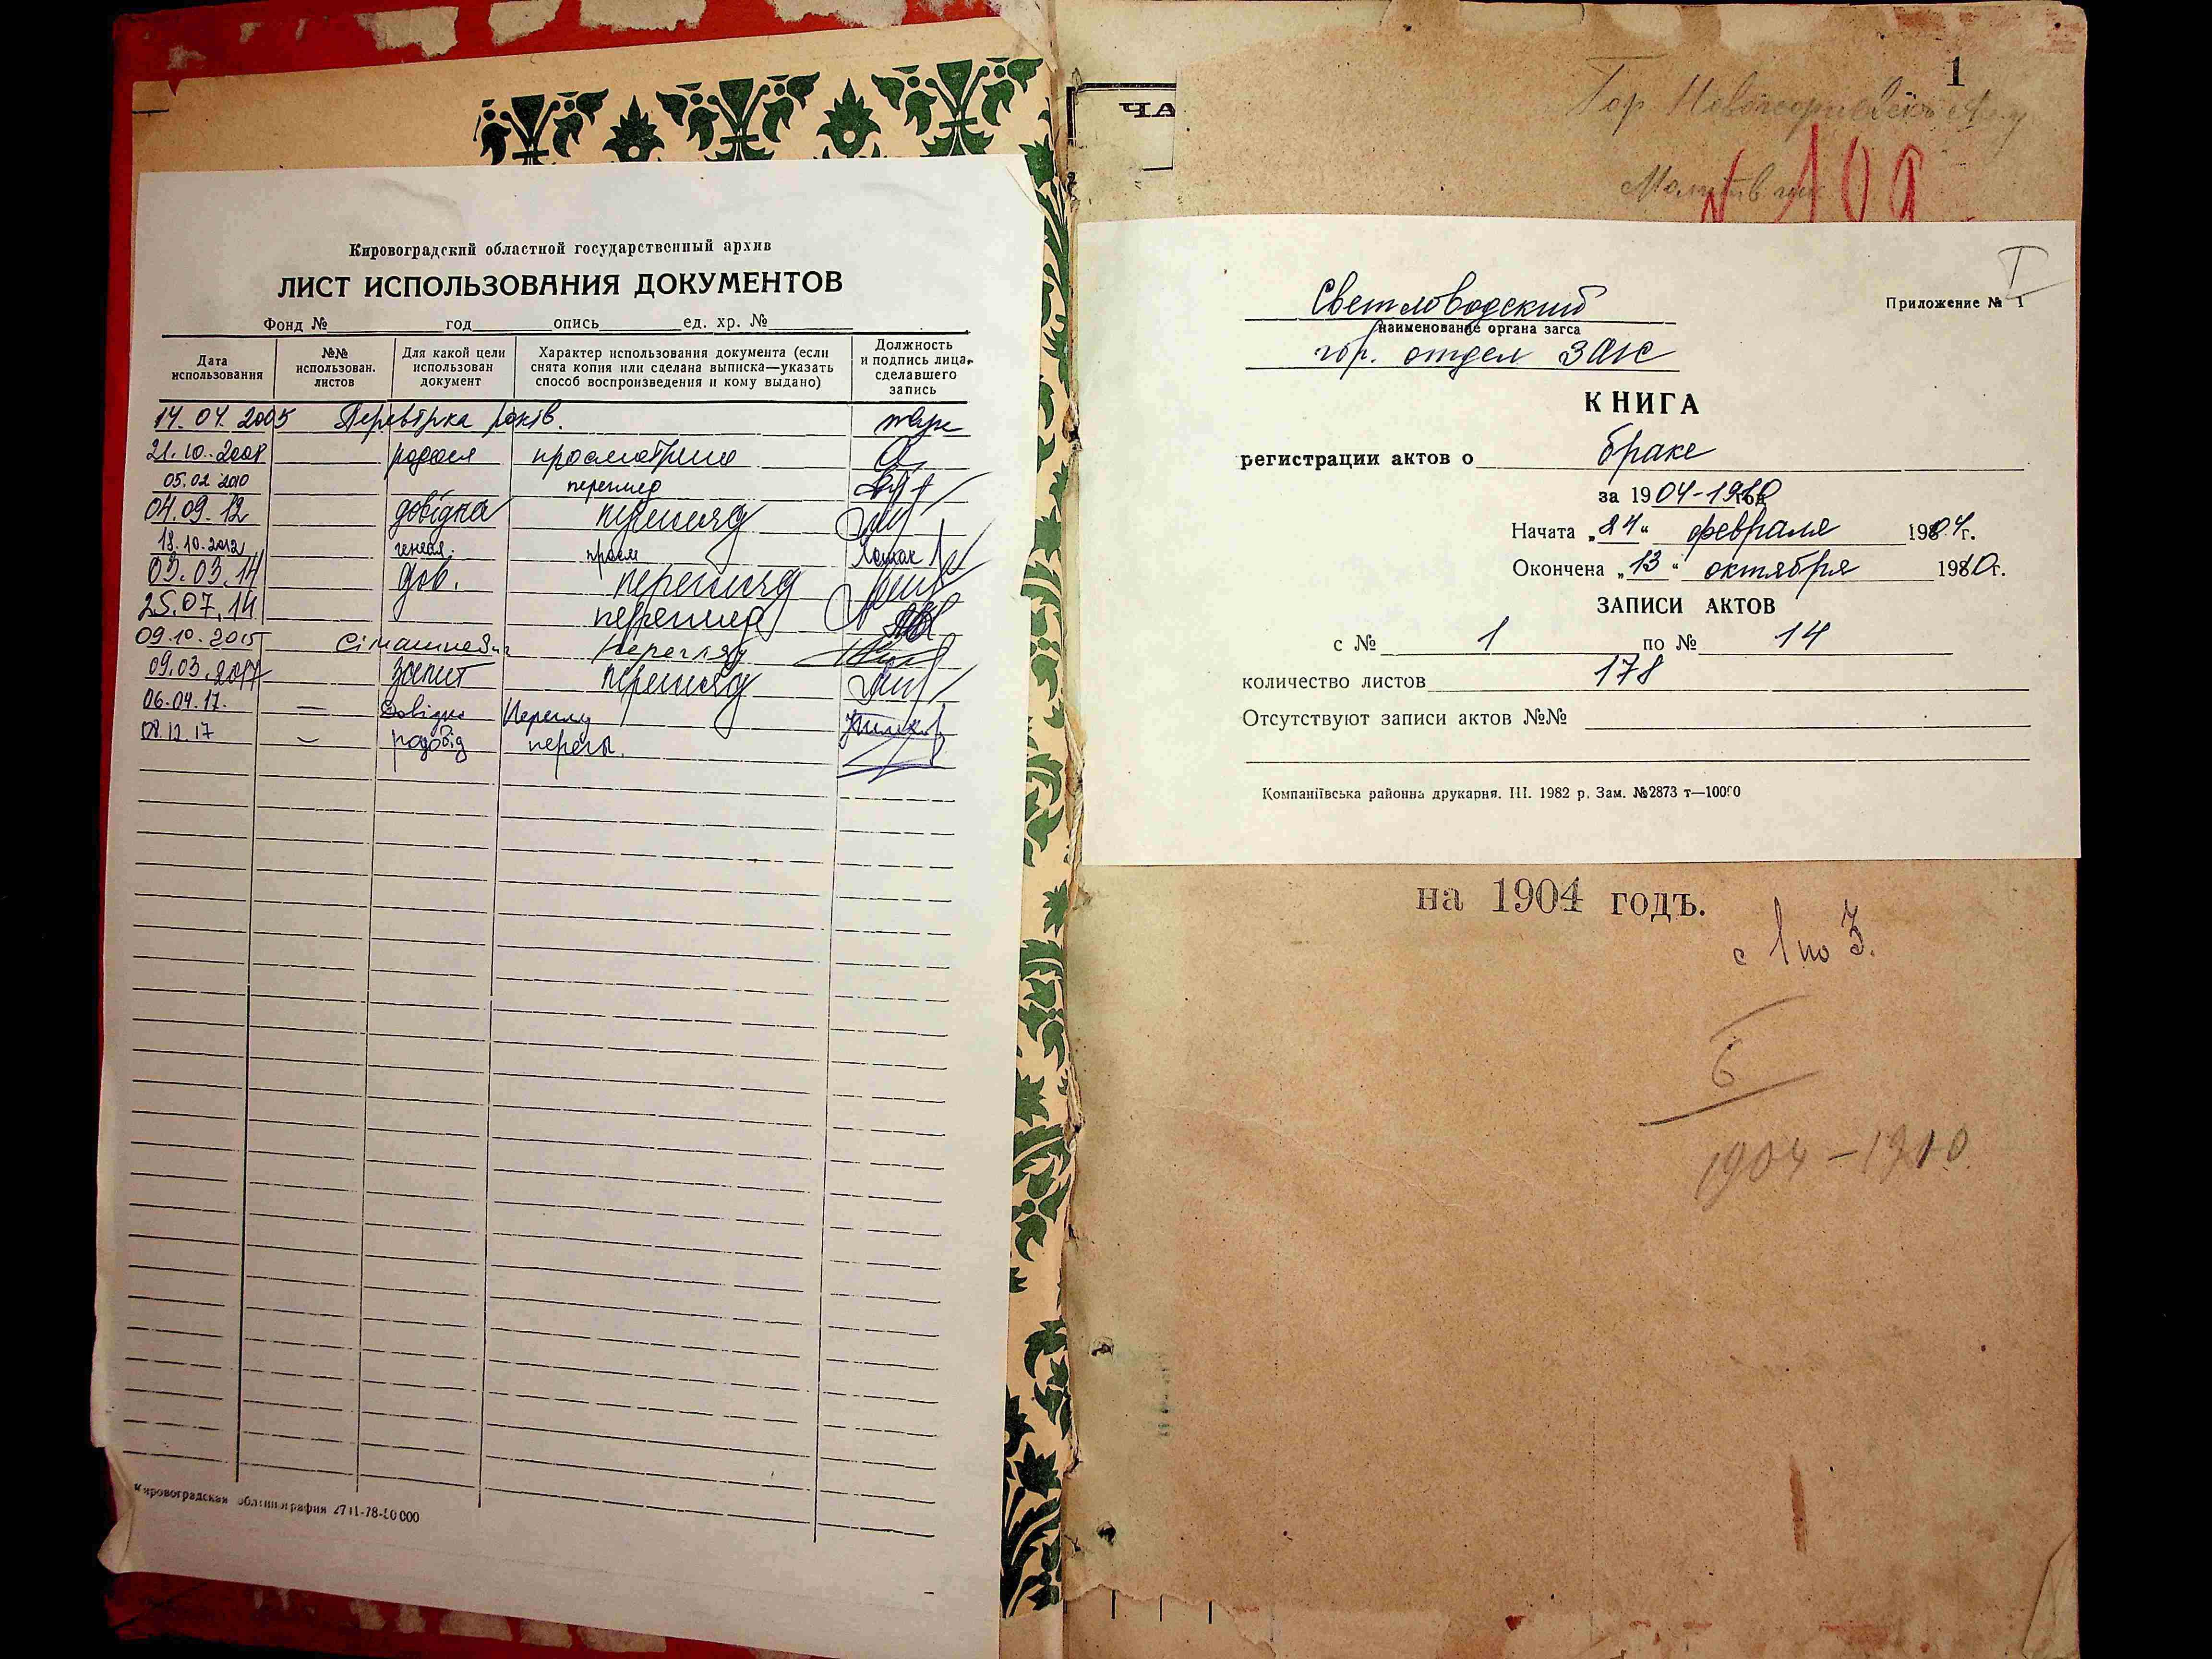 Кировоградский областной государственный архив
ЛИСТ ИСПОЛЬЗОВАНИЯ ДОКУМЕНТОВ
Фонд № год опись ед. хр. №
Дата использования
№№ использован. листов
Для какой цели использован документ
Характер использования документа (если снята копия или сделана выписка—указать способ воспроизведения и кому выдано)
Должность и подпись лица, сделавшего запись
14.04.2005 Перевірка
21.10.2008
05.02.2010 перегляд
04.09.12 довідка перегляд
18.10.2012 генеал. просм
03.03.14 дов. перегляд
25.07.14 перегляд
09.10.2015 Перегляд
09.03.2017 запит перегляд
06.04.17. — Довідка Перегляд
08.12.17 — родовід перегл.
Кировоградская облтипография
ЧА
1
Гор.
Светловодский
наименование органа загса
гор. отдел ЗАГС
I
Приложение № 1
КНИГА
регистрации актов о браке
за 1904-1910 год
Начата „24“ февраля 1904г.
Окончена „13“ октября 1910г.
ЗАПИСИ АКТОВ
с № 1 по № 14
количество листов 178
Отсутствуют записи актов №№
Компаніївська районна друкарня. III. 1982 р. Зам. №2873
на 1904 годъ.
с 1 по 3.
1904-1910.